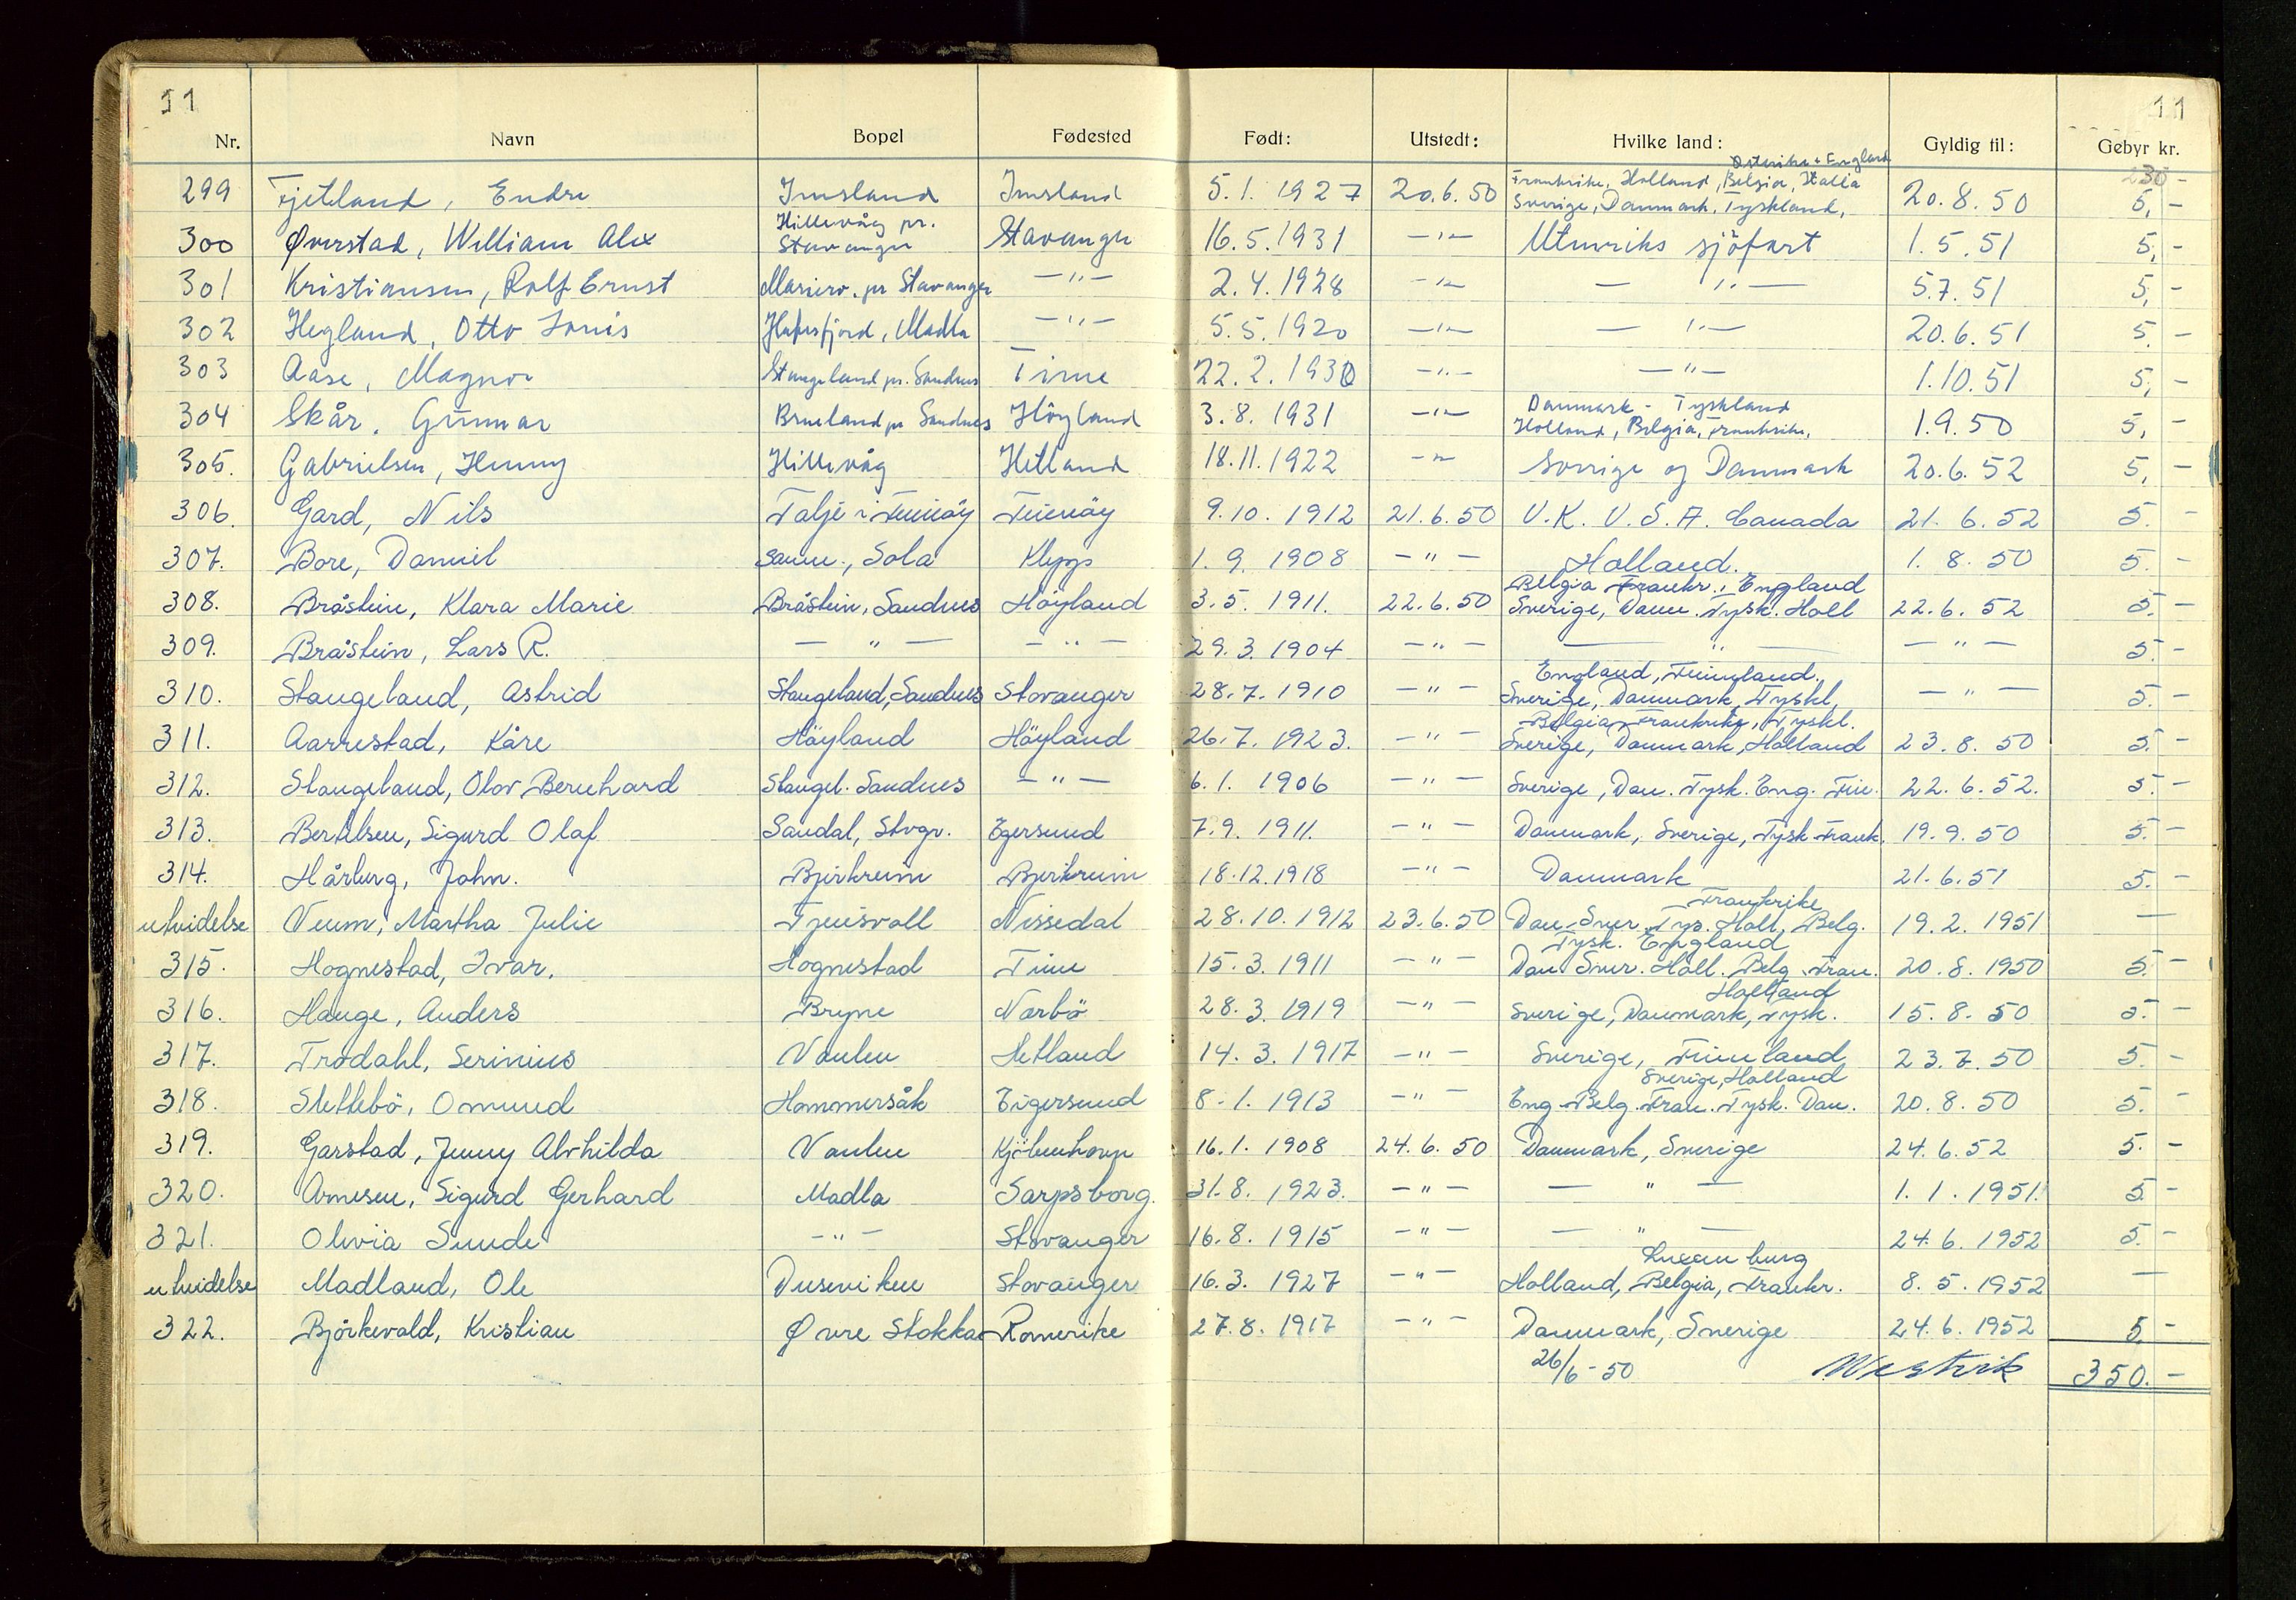 11 11
Nr. Navn Bopel Fødested Født: Utstedt: Hvilke land: Gyldig til: Gebyr kr.
230 -
Østerrike + England
Frankrike, Holland, Belgia, Italia
299 Fjetland, Endre Imsland Imsland 5.1.1927 20.6.50 Sverige, Danmark, Tyskland, 20.8.50 5,-
Hillevåg pr.
300 Øverstad, William Alex Stavanger Stavanger 16.5.1931 -"- Utenriks sjöfart 1.5.51 5,-
301 Kristiansen, Rolf Ernst Mariero. pr Stavanger -"- 2.4.1928 -"- -"- 5.7.51 5,-
302 Hegland, Otto Louis Hafrsfjord, Madla -"- 5.5.1920 -"- -"- 20.6.51 5,-
303 Aase, Magnor Stangeland pr. Sandnes Time 22.2.1930 -"- -"- 1.10.51 5,-
Danmark - Tyskland
304 Skår, Gunnar Brueland pr Sandnes Höyland 3.8.1931 -"- Holland, Belgia, Frankrike, 1.9.50 5,-
305. Gabrielsen, Henny Hillevåg Hetland 18.11.1922 -"- Sverige og Danmark 20.6.52 5,-
306. Gard, Nils Talje i Finnöy Finnöy 9.10.1912 21.6.50 U.K. U.S.A. Canada 21.6.52 5.-
307. Bore, Daniel Sømme, Sola Klepp 1.9.1908 -"- Holland. 1.8.50 5.-
Belgia Frankr., England
308. Bråstein, Klara Marie Bråstein, Sandnes Höyland 3.5.1911. 22.6.50 Sverige, Danm. Tysk. Holl 22.6.52 5.-
309. Bråstein, Lars R. -"- -"- 29.3.1904 -"- -"- -"- 5.-
England, Finnland.
310. Stangeland, Astrid Stangeland, Sandnes Stavanger 28.7.1910 -"- Sverige, Danmark, Tyskl, -"- 5.-
Belgia, Frankrike, Tyskl.
311. Aarrestad, Kåre Höyland Höyland 26.7.1923. -"- Sverige, Danmark, Holland 23.8.50 5.-
312. Stangeland, Olov Bernhard Stangel. Sandnes -"- 6.1.1906 -"- Sverige, Dan. Tysk. Eng. Fin. 22.6.52. 5.-
313. Bertelsen, Sigurd Olaf Sandal, Stvgr. Egersund 7.9.1911. -"- Danmark, Sverige, Tysk. Frank. 19.9.50 5.-
314. Hårberg, John. Bjerkreim Bjerkreim 18.12.1918 -"- Danmark 21.6.51 5.-
Frankrike
utvidelse Veum, Martha Julie Tjensvoll Nissedal 28.10.1912 23.6.50 Dan. Sver. Tys. Holl, Belg. 19.2.1951 -
Tysk. England
315. Hognestad, Ivar. Hognestad Time 15.3.1911 -"- Dan. Sver. Holl. Belg. Fran. 20.8.1950 5.-
Holland
316. Hauge, Anders Bryne Narbö 28.3.1919 -"- Sverige, Danmark, Tysk. 15.8.50 5.-
317. Trodahl, Serinius Vaulen Hetland 14.3.1917 -"- Sverige, Finnland 23.7.50 5.-
Sverige, Holland
318. Slettebö, Omund Hommersåk Eigersund 8.1.1913 -"- Eng. Belg. Fran. Tysk. Dan. 20.8.50 5.-
319. Garstad, Jenny Alvhilda Vaulen Kjöbenhavn 16.1.1908 24.6.50 Danmark, Sverige 24.6.52 5.-
320. Arnesen, Sigurd Gerhard Madla Sarpsborg. 31.8.1923. -"- -"- 1.1.1951. 5.-
321. Olivia Sunde -"- Stavanger 16.8.1915 -"- -"- 24.6.1952 5.-
Luxemburg
utvidelse Madland, Ole Duseviken Stavanger 16.3.1927 -"- Holland, Belgia, Frankr. 8.5.1952 -
322. Björkevald, Kristian Øvre Stokka Romerike 27.8.1917 -"- Danmark, Sverige 24.6.1952 5,-
26/6-50 Westvik 350.-